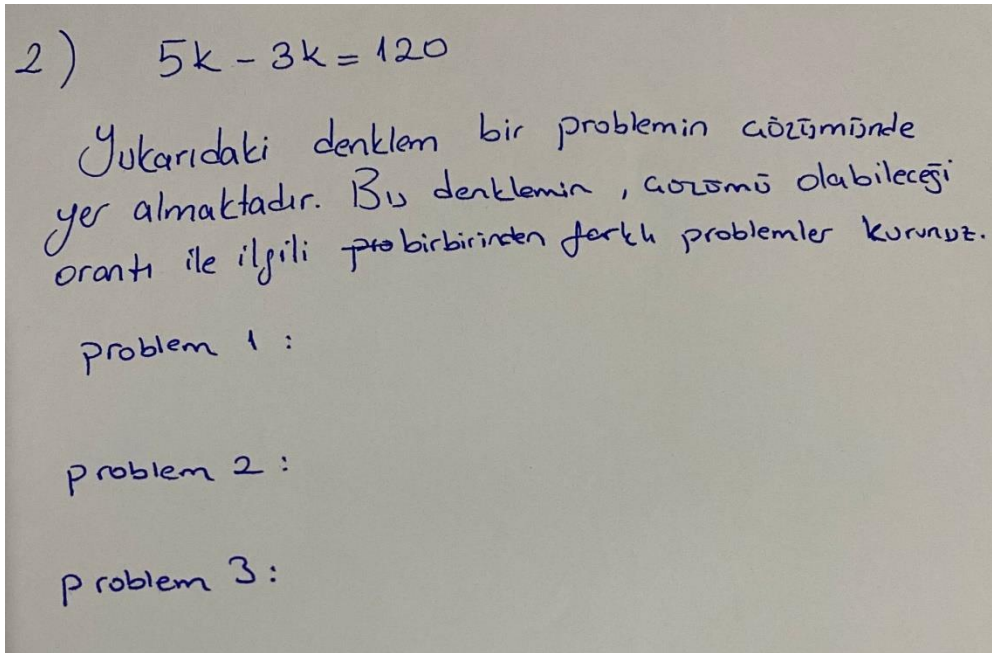 2) 5k - 3k = 120
Yukarıdaki denklem bir problemin çözümünde
yer almaktadır. Bu denklemin, çözümü olabileceği
orantı ile ilgili pro birbirinden farklı problemler kurunuz.
problem 1 :
problem 2 :
problem 3 :